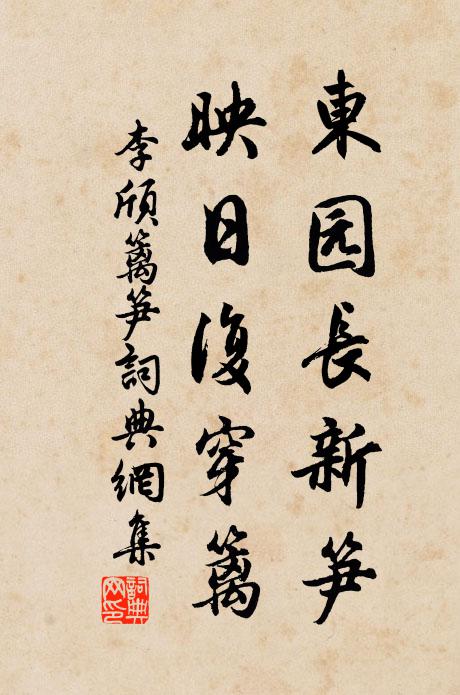 東园長新笋
映日復穿篱
李頎篱笋詞典網集
詞典網印